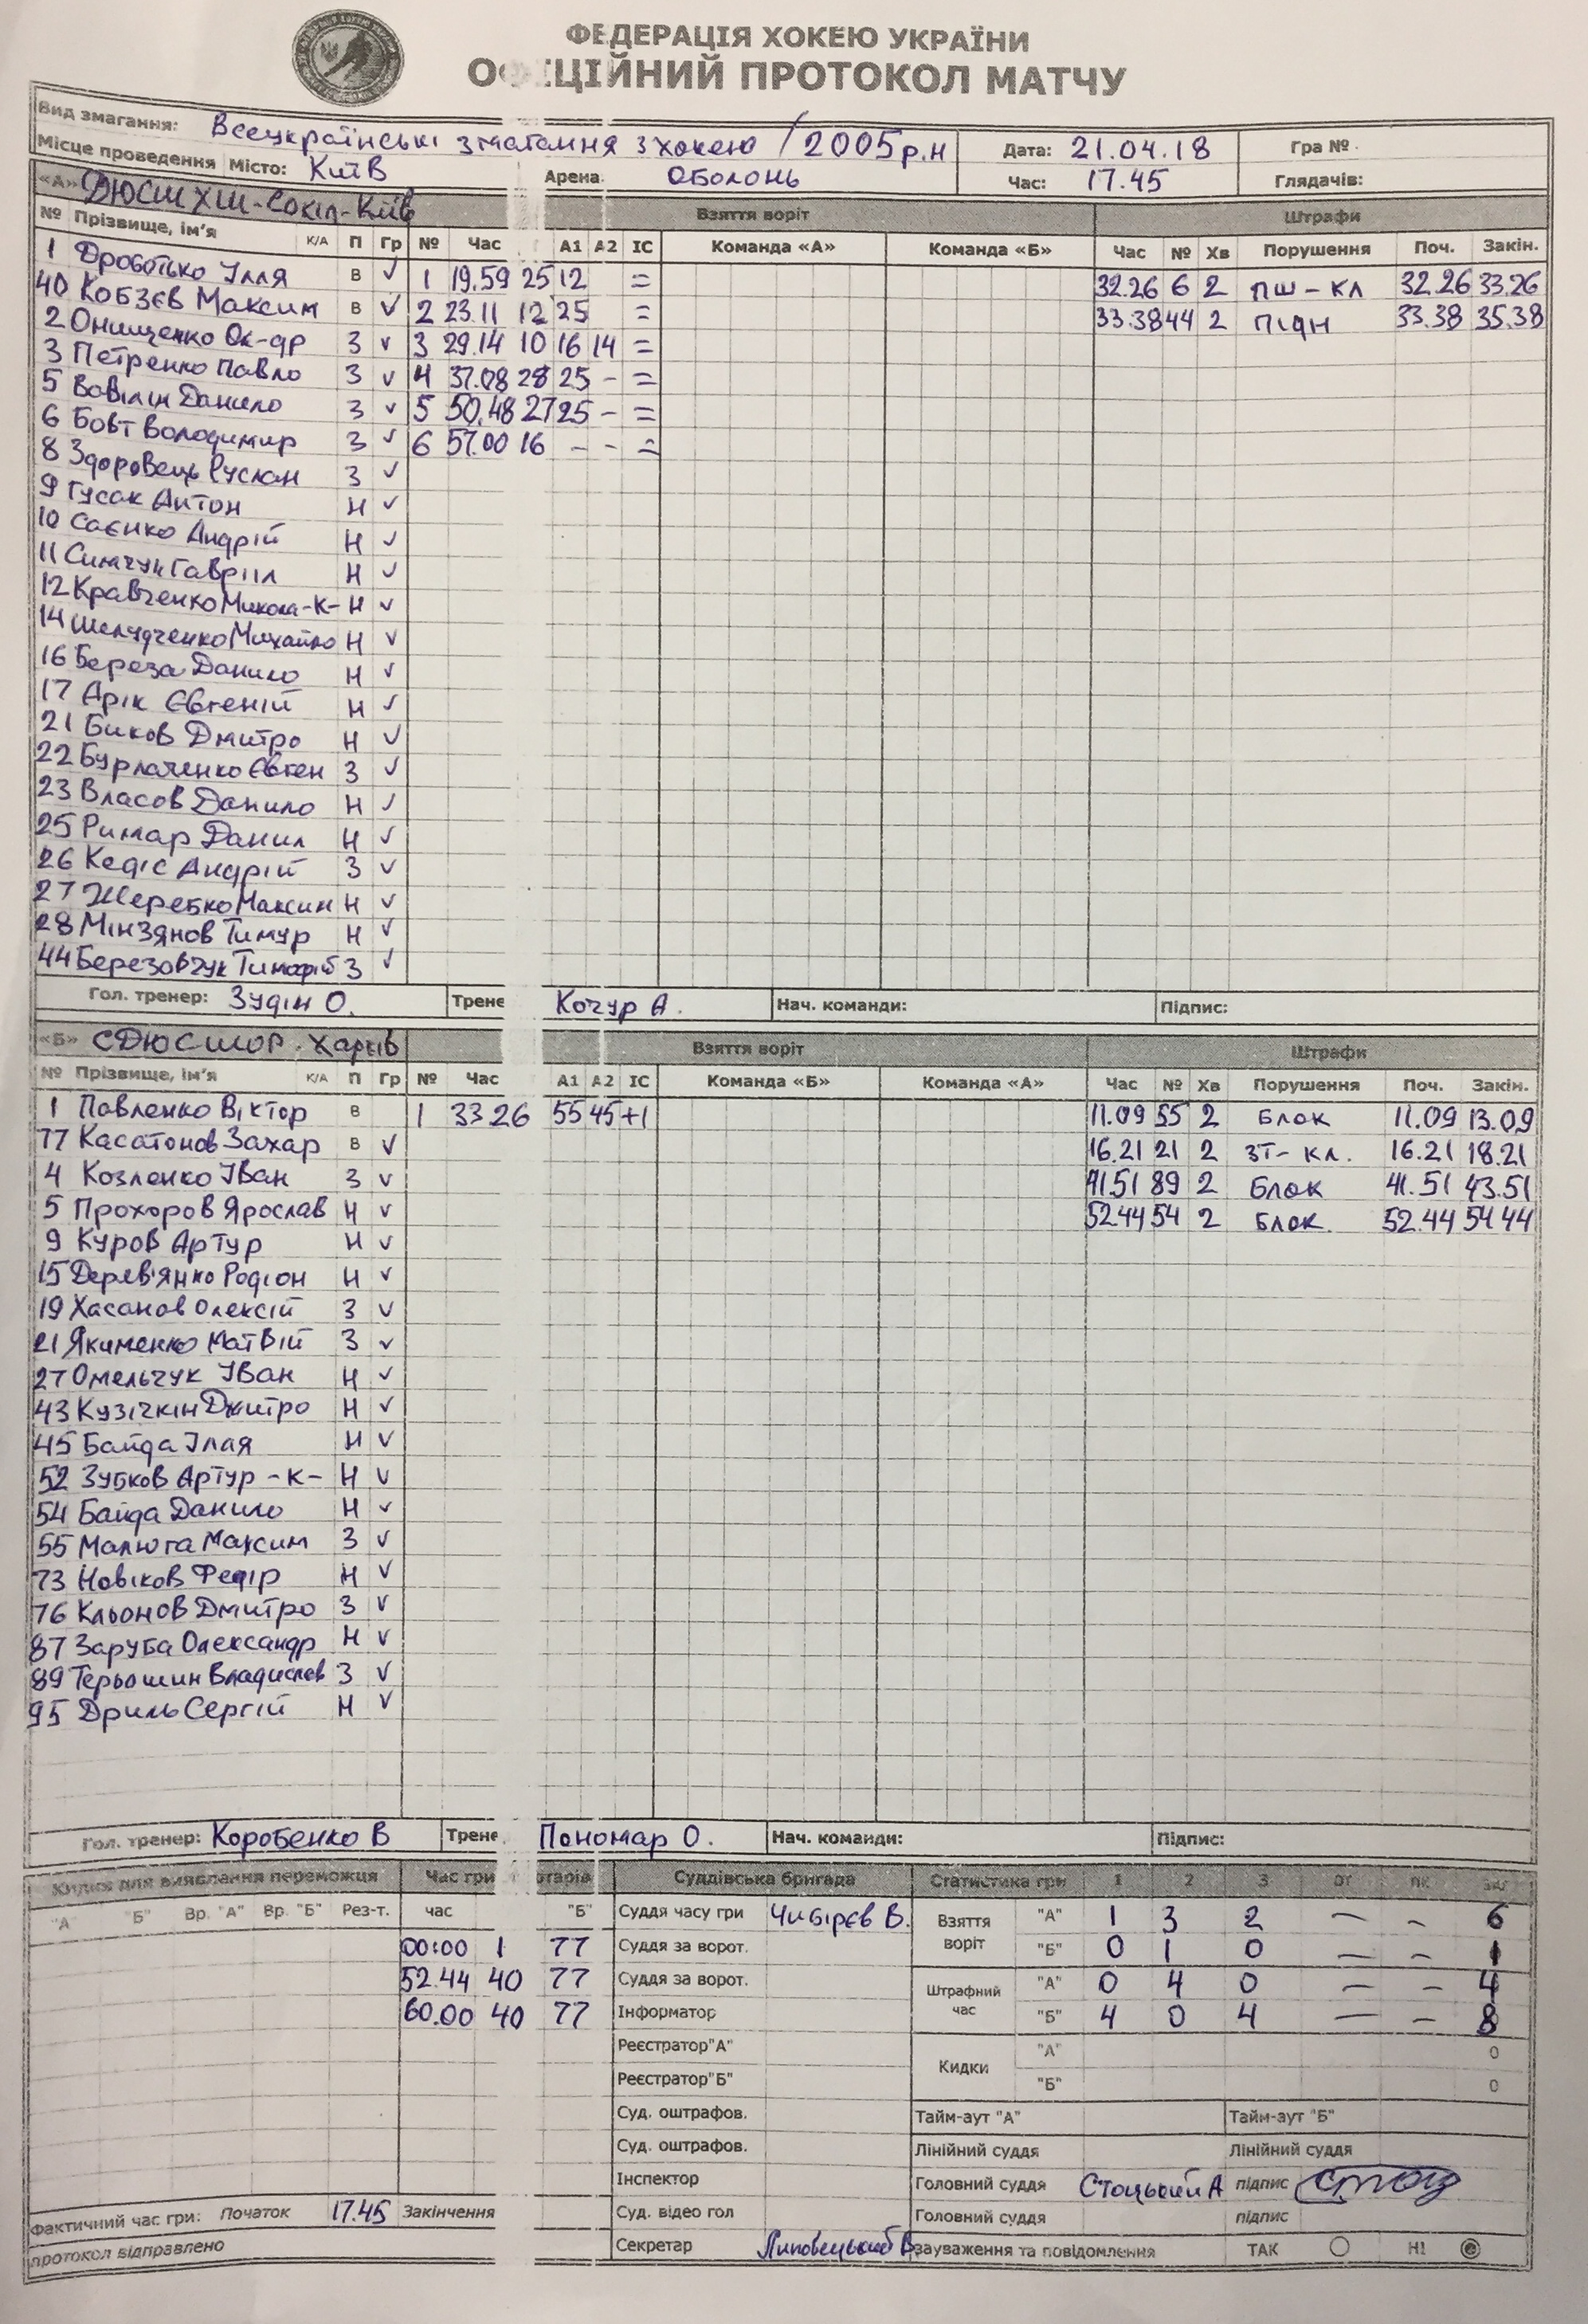 ФЕДЕРАЦІЯ ХОКЕЮ УКРАЇНИ
ОФІЦІЙНИЙ ПРОТОКОЛ МАТЧУ
Вид змагання: Всеукраїнські змагання з хокею / 2005 р.н Дата: 21.04.18 Гра №
Місце проведення Місто: Київ Арена: Оболонь Час: 17.45 Глядачів:
«А» ДЮСШ ХШ-Сокіл-Київ Взяття воріт Штрафи
№ Прізвище, ім'я К/А П Гр № Час А1 А2 ІС Команда «А» Команда «Б» Час № Хв Порушення Поч. Закін.
1 Дроботько Ілля В V 1 19.59 25 12 = 32.26 6 2 ПШ-КЛ 32.26 33.26
40 Кобзєв Максим В V 2 23.11 12 25 = 33.38 44 2 ПІДН 33.38 35.38
2 Онищенко Ол-др З V 3 29.14 10 16 14 =
3 Петренко Павло З V 4 37.08 28 25 - =
5 Вавілін Данило З V 5 50.48 27 25 - =
6 Бовт Володимир З V 6 57.00 16 - - =
8 Здоровець Руслан З V
9 Гусак Антон Н V
10 Саєнко Андрій Н V
11 Симчук Гавріїл Н V
12 Кравченко Микола -К- Н V
14 Шелудченко Михайло Н V
16 Береза Данило Н V
17 Арік Євгеній Н V
21 Биков Дмитро Н V
22 Бурлаченко Євген З V
23 Власов Данило Н V
25 Римар Данил Н V
26 Кедіс Андрій З V
27 Жеребко Максим Н V
28 Мінзянов Тимур Н V
44 Березовчук Тимофій З V
Гол. тренер: Зудін О. Трене Качур А. Нач. команди: Підпис:
«Б» СДЮСШОР. Харків Взяття воріт Штрафи
№ Прізвище, ім'я К/А П Гр № Час А1 А2 ІС Команда «Б» Команда «А» Час № Хв Порушення Поч. Закін.
1 Павленко Віктор В 1 33 26 55 45 +1 11.09 55 2 Блок 11.09 13.09
77 Касатонов Захар В V 16.21 21 2 ЗТ-КЛ. 16.21 18.21
4 Козленко Іван З V 41.51 89 2 Блок 41.51 43.51
5 Прохоров Ярослав Н V 52.44 54 2 Блок. 52.44 54 44
9 Куров Артур Н V
15 Дерев'янко Родіон Н V
19 Хасанов Олексій З V
21 Якименко Матвій З V
27 Омельчук Іван Н V
43 Кузічкін Дмитро Н V
45 Байда Ілля Н V
52 Зубков Артур -К- Н V
54 Байда Данило Н V
55 Малюга Максим З V
73 Новіков Федір Н V
76 Кльонов Дмитро З V
87 Заруба Олександр Н V
89 Терьошин Владислав З V
95 Дриль Сергій Н V
Гол. тренер: Коробенко В Трене Пономар О. Нач. команди: Підпис:
Кидки для виявлання переможця Час гри Суддівська бригада Статистика гри 1 2 3 ОТ
"А" "Б" Вр. "А" Вр. "Б" Рез-т. час "Б" Суддя часу гри Чибірєв В. Взяття воріт "А" 1 3 2 — – 6
00:00 1 77 Суддя за ворот. "Б" 0 1 0 — – 1
52.44 40 77 Суддя за ворот. Штрафний час "А" 0 4 0 — – 4
60.00 40 77 Інформатор "Б" 4 0 4 — – 8
Реєстратор"А" Кидки "А" 0
Реєстратор"Б" "Б" 0
Суд. оштрафов. Тайм-аут "А" Тайм-аут "Б"
Суд. оштрафов. Лінійний суддя Лінійний суддя
Інспектор Головний суддя Стоцький А підпис
Фактичний час гри: Початок 17.45 Закінчення Суд. відео гол Головний суддя підпис
протокол відправлено Секретар Липовецький В. зауваження та повідомлення ТАК НІ